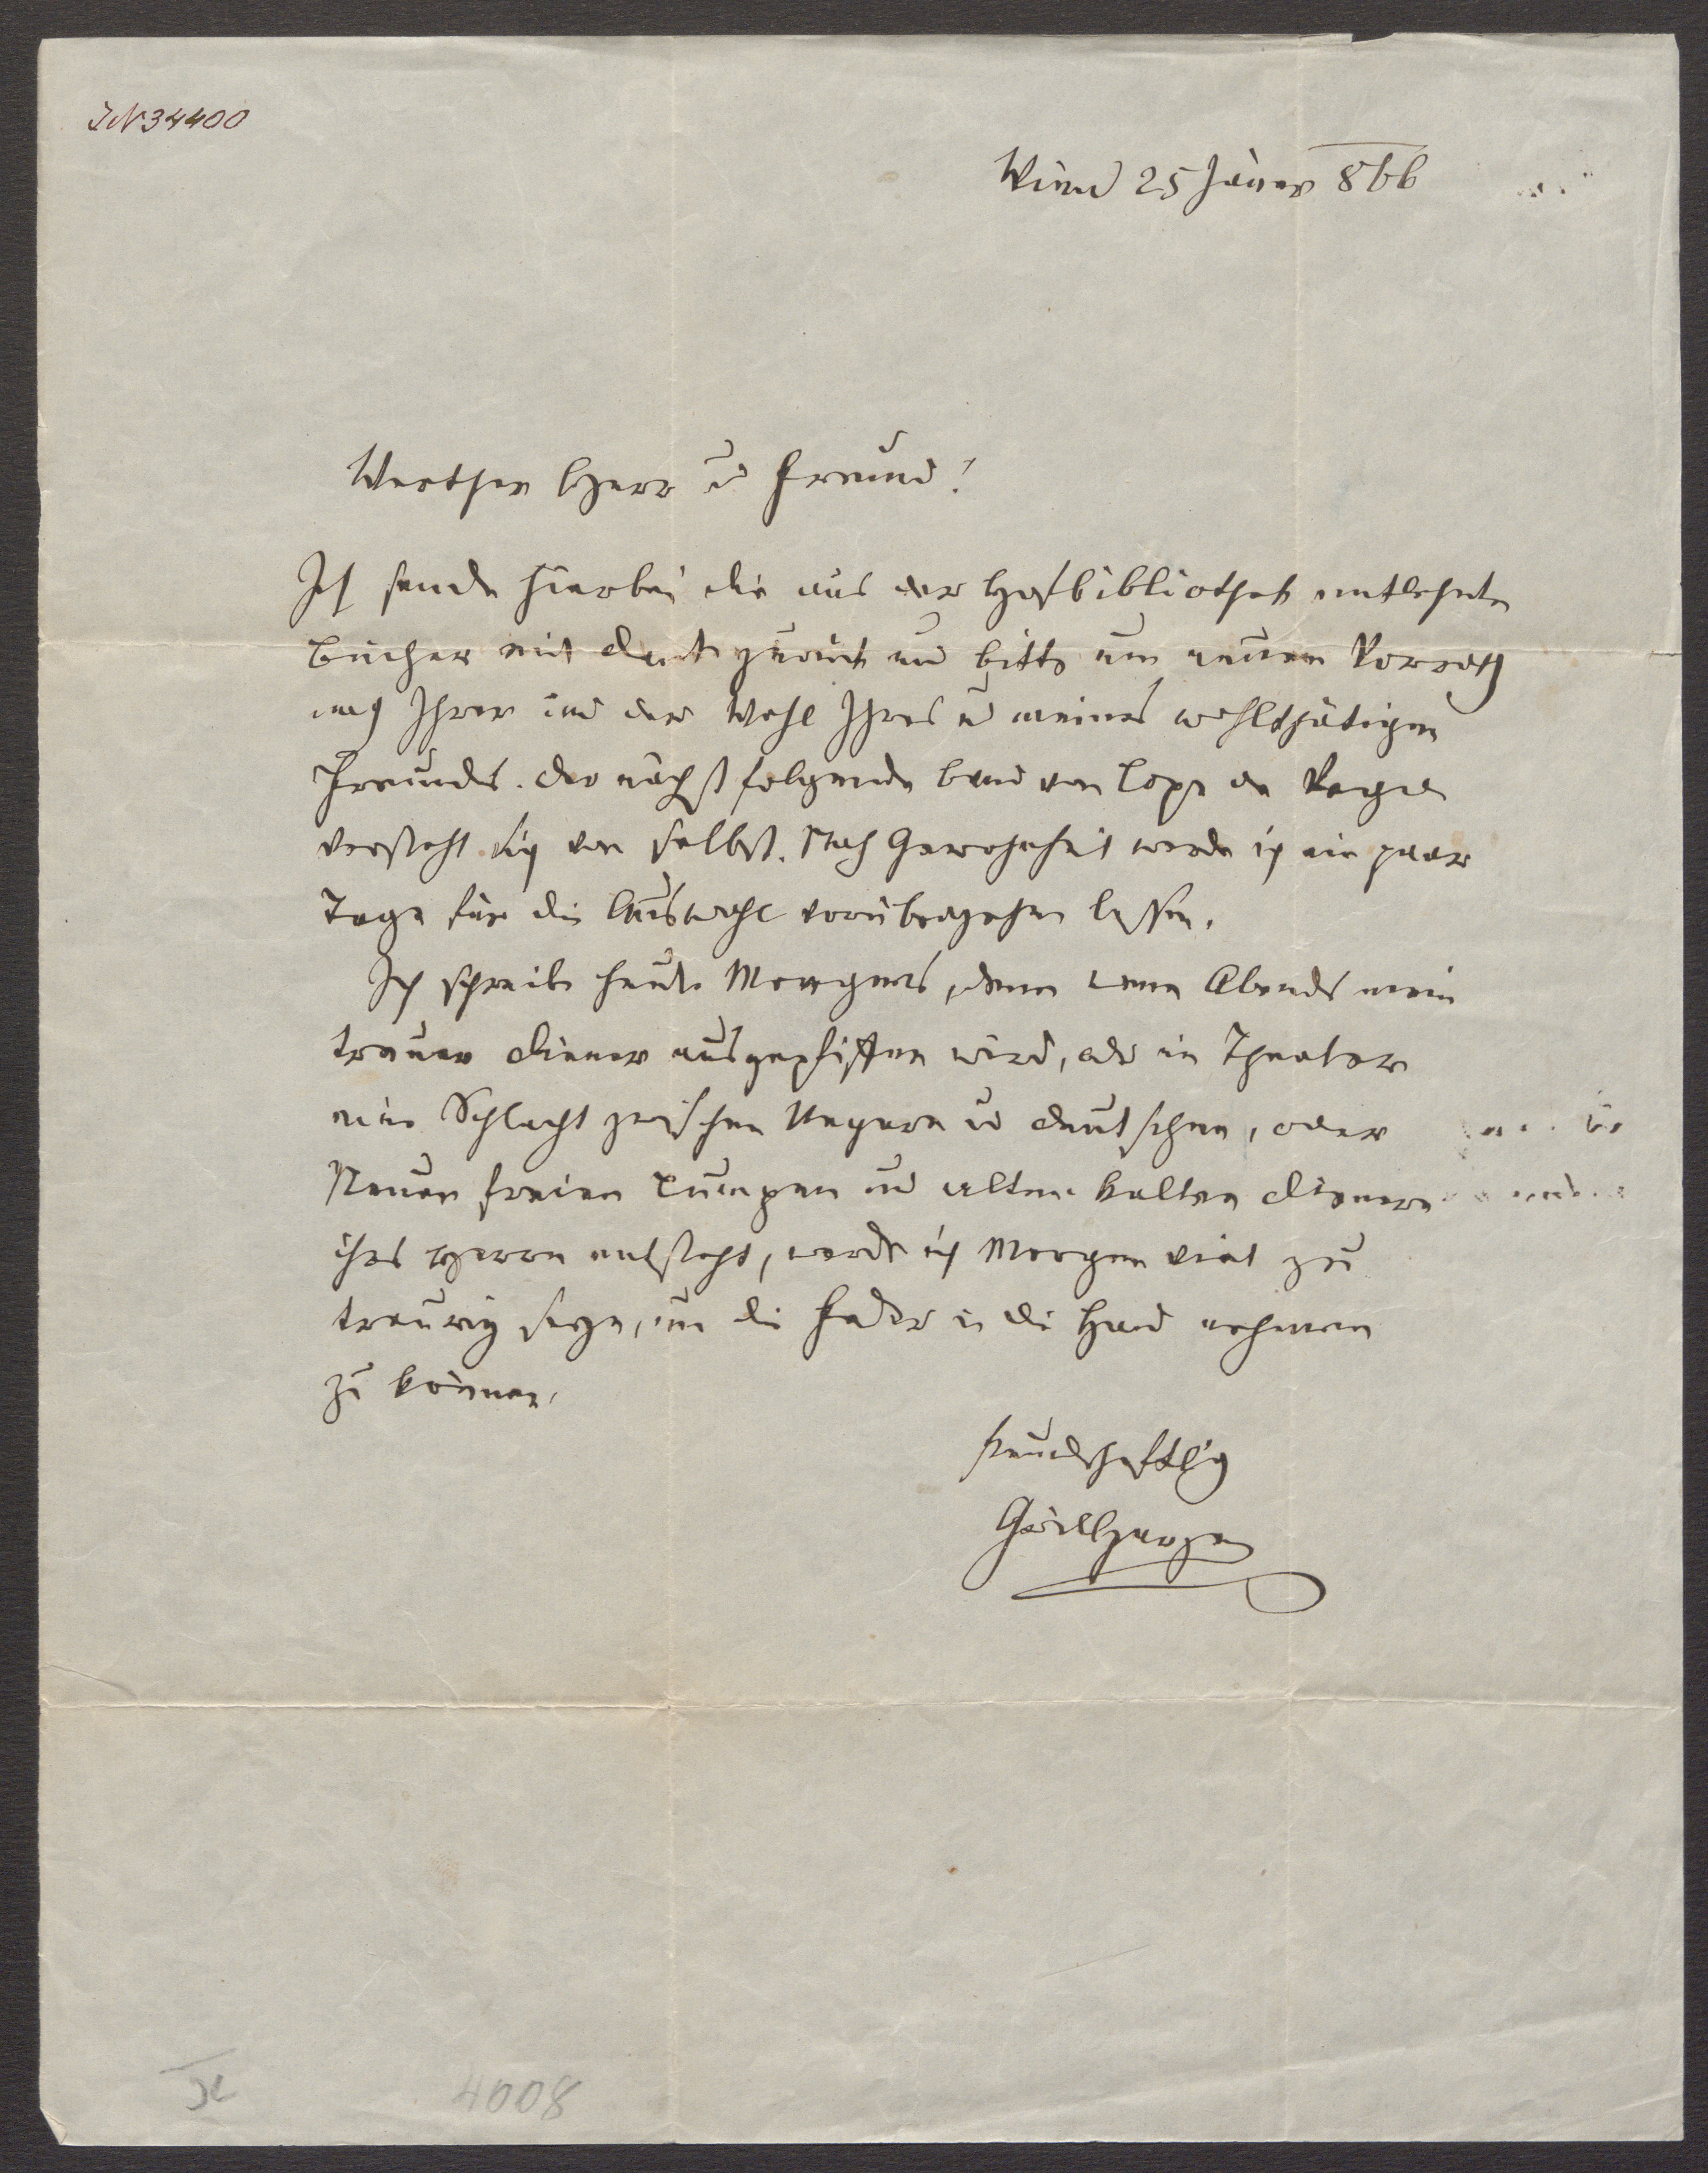 IN 34400
Wien 25 Jäner 866
Werther Herr u Freund!
Ich sende hierbei die aus der Hofbibliothek entlehnten
Bücher mit Dank zurück und bitte um neuen Vorrath
nach Ihrer und der Wahl Ihres u meines wohlthätigen
Freundes. Der nächst folgende Band von Lope de Vega
versteht sich von selbst. Nach Gewohnheit werde ich ein paar
Tage für die Auswahl vorübergehen lassen.
Ich schreibe heute Morgens, denn wenn Abends mein
treuer Diener ausgepfiffen wird, oder im Theater
eine Schlacht zwischen Ungern u Deutschen, oder
Neuen freien Lumpen und alten kalten Dienern
ihres Herrn entsteht, werde ich Morgen viel zu
traurig seyn, um die Feder in die Hand nehmen
zu können.
freundschaftlich
Grillparzer
4008